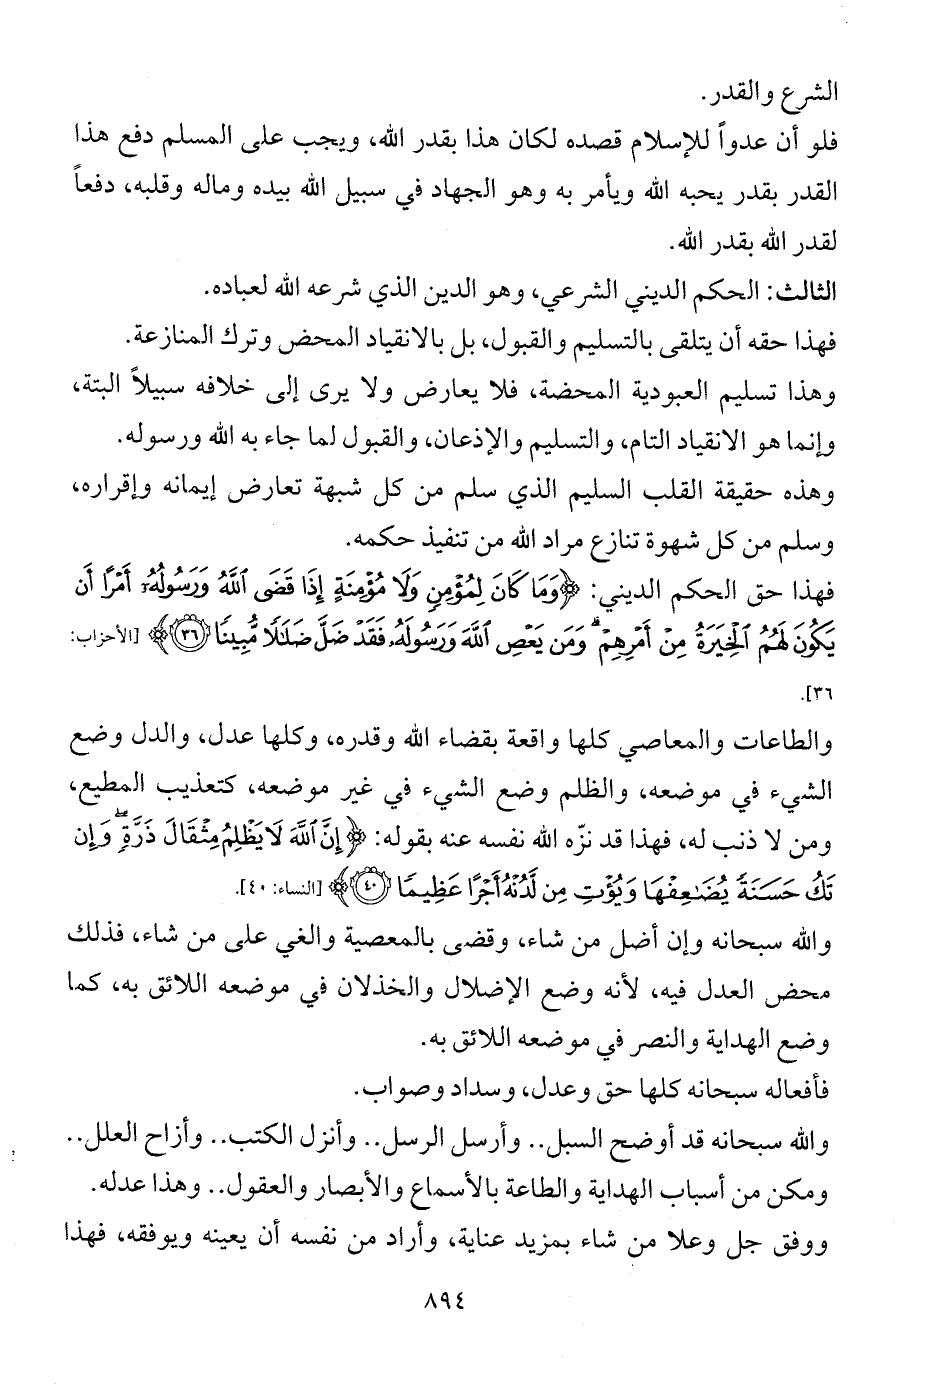 الشرع والقدر.
فلو أن عدواً للإسلام قصده لكان هذا بقدر الله، ويجب على المسلم دفع هذا
القدر بقدر يحبه الله ويأمر به وهو الجهاد في سبيل الله بيده وماله وقلبه، دفعاً
لقدر الله بقدر الله.
الثالث: الحكم الديني الشرعي، وهو الدين الذي شرعه الله لعباده.
فهذا حقه أن يتلقى بالتسليم والقبول، بل بالانقياد المحض وترك المنازعة.
وهذا تسليم العبودية المحضة، فلا يعارض ولا يرى إلى خلافه سبيلاً البتة،
وإنما هو الانقياد التام، والتسليم والإذعان، والقبول لما جاء به الله ورسوله.
وهذه حقيقة القلب السليم الذي سلم من كل شبهة تعارض إيمانه وإقراره،
وسلم من كل شهوة تنازع مراد الله من تنفيذ حكمه.
فهذا حق الحكم الديني: ﴿وَمَا كَانَ لِمُؤْمِنٍ وَلَا مُؤْمِنَةٍ إِذَا قَضَى ٱللَّهُ وَرَسُولُهُۥٓ أَمْرًا أَن
يَكُونَ لَهُمُ ٱلْخِيَرَةُ مِنْ أَمْرِهِمْ ۗ وَمَن يَعْصِ ٱللَّهَ وَرَسُولَهُۥ فَقَدْ ضَلَّ ضَلَٰلًا مُّبِينًا ٣٦﴾ [الأحزاب:
٣٦].
والطاعات والمعاصي كلها واقعة بقضاء الله وقدره، وكلها عدل، والدل وضع
الشيء في موضعه، والظلم وضع الشيء في غير موضعه، كتعذيب المطيع،
ومن لا ذنب له، فهذا قد نزّه الله نفسه عنه بقوله: ﴿إِنَّ ٱللَّهَ لَا يَظْلِمُ مِثْقَالَ ذَرَّةٍ ۖ وَإِن
تَكُ حَسَنَةً يُضَٰعِفْهَا وَيُؤْتِ مِن لَّدُنْهُ أَجْرًا عَظِيمًا ٤٠﴾ [النساء: ٤٠].
والله سبحانه وإن أضل من شاء، وقضى بالمعصية والغي على من شاء، فذلك
محض العدل فيه، لأنه وضع الإضلال والخذلان في موضعه اللائق به، كما
وضع الهداية والنصر في موضعه اللائق به.
فأفعاله سبحانه كلها حق وعدل، وسداد وصواب.
والله سبحانه قد أوضح السبل.. وأرسل الرسل.. وأنزل الكتب.. وأزاح العلل..
ومكن من أسباب الهداية والطاعة بالأسماع والأبصار والعقول.. وهذا عدله.
ووفق جل وعلا من شاء بمزيد عناية، وأراد من نفسه أن يعينه ويوفقه، فهذا
٨٩٤